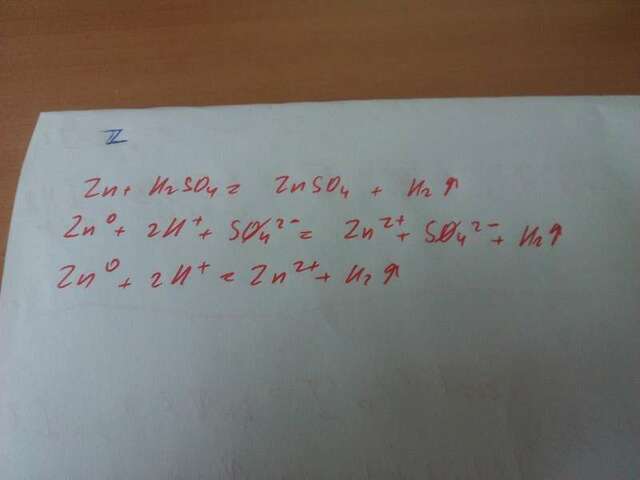 II
Zn + H₂SO₄ = ZnSO₄ + H₂↑
Zn⁰ + 2H⁺ + SO₄²⁻ = Zn²⁺ + SO₄²⁻ + H₂↑
Zn⁰ + 2H⁺ = Zn²⁺ + H₂↑